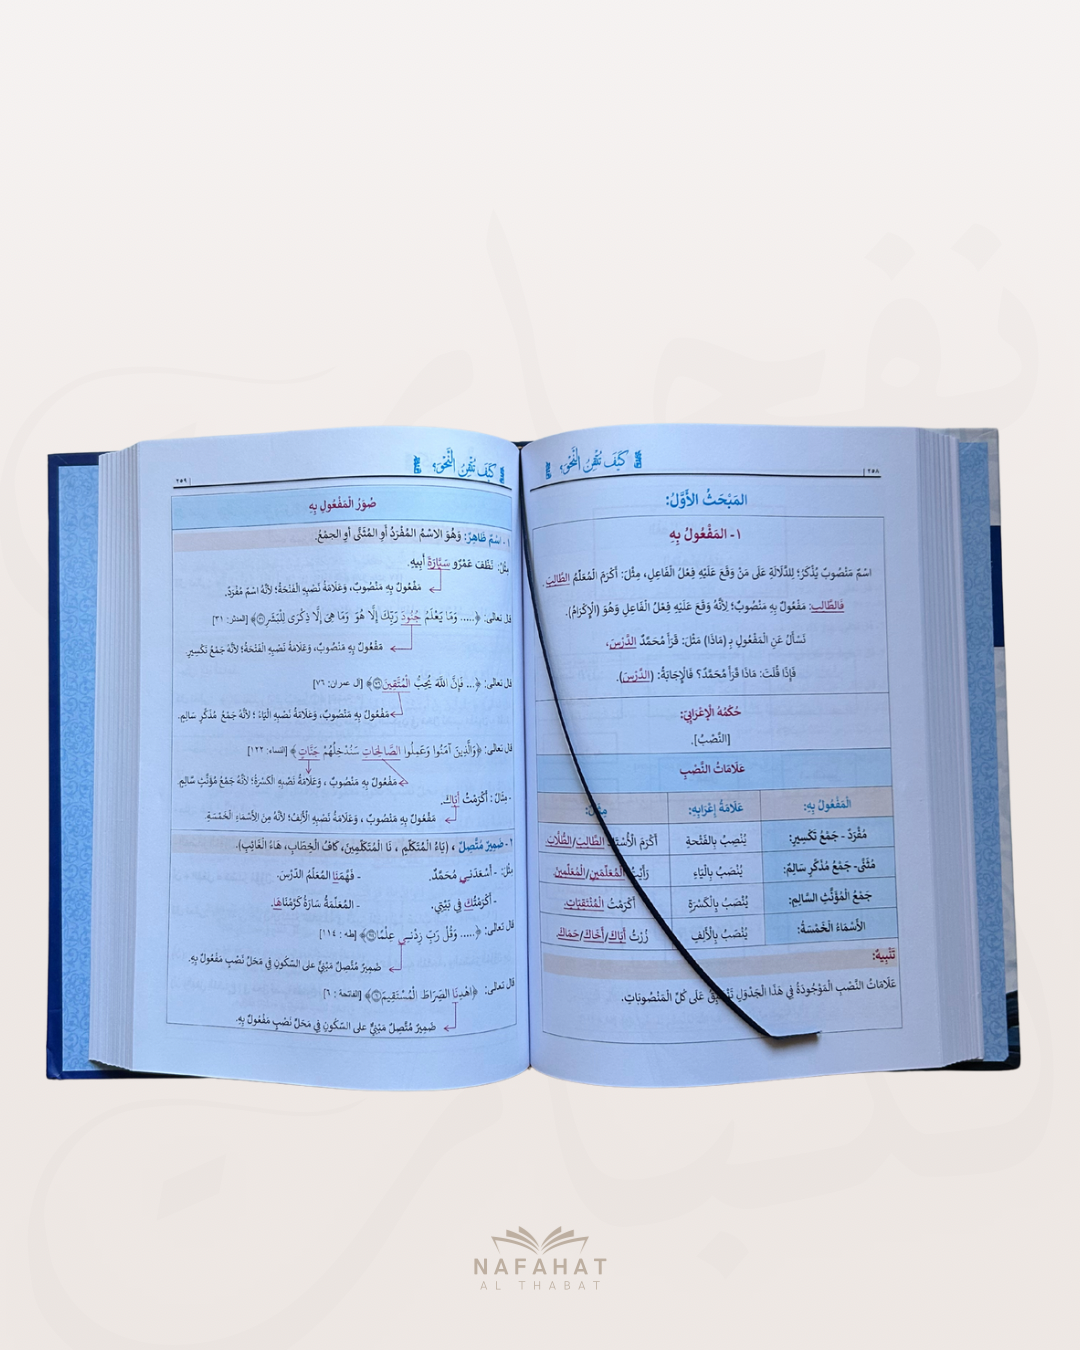 كَيْفَ تُتْقِنُ النَّحْوَ؟
٢٥٨
المَبْحَثُ الأَوَّلُ:
١- المَفْعُولُ بِهِ
اسْمٌ مَنْصُوبٌ يُذْكَرُ؛ لِلدَّلَالَةِ عَلَى مَنْ وَقَعَ عَلَيْهِ فِعْلُ الْفَاعِلِ، مِثْلُ: أَكْرَمَ الْمُعَلِّمُ الطَّالِبَ.
فَالطَّالِبَ: مَفْعُولٌ بِهِ مَنْصُوبٌ؛ لِأَنَّهُ وَقَعَ عَلَيْهِ فِعْلُ الْفَاعِلِ وَهُوَ (الْإِكْرَامُ).
نَسْأَلُ عَنِ الْمَفْعُولِ بِـ (مَاذَا) مَثَلَ: قَرَأَ مُحَمَّدٌ الدَّرْسَ،
فَإِذَا قُلْتَ: مَاذَا قَرَأَ مُحَمَّدٌ؟ فَالْإِجَابَةُ: (الدَّرْسَ).
حُكْمُهُ الْإِعْرَابِيّ:
[النَّصْبُ].
عَلَامَاتُ النَّصْبِ
الْمَفْعُولُ بِهِ: عَلَامَةُ إِعْرَابِهِ: مِثْلُ:
مُفْرَدٌ - جَمْعُ تَكْسِيرٍ: يُنْصَبُ بِالْفَتْحَةِ أَكْرَمَ الْأُسْتَاذُ الطَّالِبَ/الطُّلَّابَ.
مُثَنَّى- جَمْعُ مُذَكَّرٍ سَالِمٌ: يُنْصَبُ بِالْيَاءِ رَأَيْتُ الْمُعَلِّمَيْنِ/الْمُعَلِّمِينَ
جَمْعُ الْمُؤَنَّثِ السَّالِمِ: يُنْصَبُ بِالْكَسْرَةِ أَكْرَمْتُ الْمُنْتَقِبَاتِ.
الْأَسْمَاءُ الْخَمْسَةُ: يُنْصَبُ بِالْأَلِفِ زُرْتُ أَبَاكَ/أَخَاكَ/حَمَاكَ.
تَنْبِيهٌ:
عَلَامَاتُ النَّصْبِ الْمَوْجُودَةُ فِي هَذَا الْجَدْوَلِ تَنْطَبِقُ عَلَى كُلِّ الْمَنْصُوبَاتِ.
كَيْفَ تُتْقِنُ النَّحْوَ؟
٢٥٩
صُوَرُ الْمَفْعُولِ بِهِ
١- اسْمٌ ظَاهِرٌ: وَهُوَ الاسْمُ المُفْرَدُ أَوِ المُثَنَّى أَوِ الجَمْعُ.
مِثْلُ: نَظَّفَ عَمْرٌو سَيَّارَةَ أَبِيهِ.
مَفْعُولٌ بِهِ مَنْصُوبٌ، وَعَلَامَةُ نَصْبِهِ الْفَتْحَةُ؛ لأنَّهُ اسْمٌ مُفْرَدٌ.
قَالَ تَعَالَى: ﴿..... وَمَا يَعْلَمُ جُنُودَ رَبِّكَ إِلَّا هُوَ وَمَا هِيَ إِلَّا ذِكْرَى لِلْبَشَرِ ۝﴾ [المدثر: ٣١]
مَفْعُولٌ بِهِ مَنْصُوبٌ، وَعَلَامَةُ نَصْبِهِ الْفَتْحَةُ؛ لأَنَّهُ جَمْعُ تَكْسِيرٍ.
قَالَ تَعَالَى: ﴿... فَإِنَّ اللَّهَ يُحِبُّ الْمُتَّقِينَ ۝﴾ [آل عمران: ٧٦]
مَفْعُولٌ بِهِ مَنْصُوبٌ، وَعَلَامَةُ نَصْبِهِ الْيَاءُ ؛ لأَنَّهُ جَمْعُ مُذَكَّرٍ سَالِمٍ.
قَالَ تَعَالَى: ﴿وَالَّذِينَ آمَنُوا وَعَمِلُوا الصَّالِحَاتِ سَنُدْخِلُهُمْ جَنَّاتٍ ﴾ [النساء: ١٢٢]
مَفْعُولٌ بِهِ مَنْصُوبٌ ، وَعَلَامَةُ نَصْبِهِ الْكَسْرَةُ؛ لأَنَّهُ جَمْعُ مُؤَنَّثٍ سَالِمٍ.
- مِثَالٌ: أَكْرَمْتُ أَبَاكَ.
مَفْعُولٌ بِهِ مَنْصُوبٌ ، وَعَلَامَةُ نَصْبِهِ الْأَلِفُ؛ لأَنَّهُ مِنَ الأَسْمَاءِ الْخَمْسَةِ.
٢- ضَمِيرٌ مُتَّصِلٌ ، (يَاءُ الْمُتَكَلِّمِ ، نَا الْمُتَكَلِّمِينَ، كَافُ الْخِطَابِ، هَاءُ الْغَائِبِ).
مِثْلُ: - أَسْعَدَنِي مُحَمَّدٌ. - فَهَّمَنَا المُعَلِّمُ الدَّرْسَ.
- أَكْرَمْتُكَ فِي بَيْتِي. - المُعَلِّمَةُ سَارَةُ كَرَّمْنَاهَا.
قَالَ تَعَالَى: ﴿..... وَقُل رَبِّ زِدْنِي عِلْمًا ۝﴾ [طه : ١١٤]
ضَمِيرٌ مُتَّصِلٌ مَبْنِيٌّ عَلَى السُّكُونِ فِي مَحَلِّ نَصْبٍ مَفْعُولٌ بِهِ.
قَالَ تَعَالَى: ﴿اهْدِنَا الصِّرَاطَ الْمُسْتَقِيمَ ۝﴾ [الفاتحة : ٦]
ضَمِيرٌ مُتَّصِلٌ مَبْنِيٌّ عَلَى السُّكُونِ فِي مَحَلِّ نَصْبٍ مَفْعُولٌ بِهِ.
NAFAHAT
AL THABAT